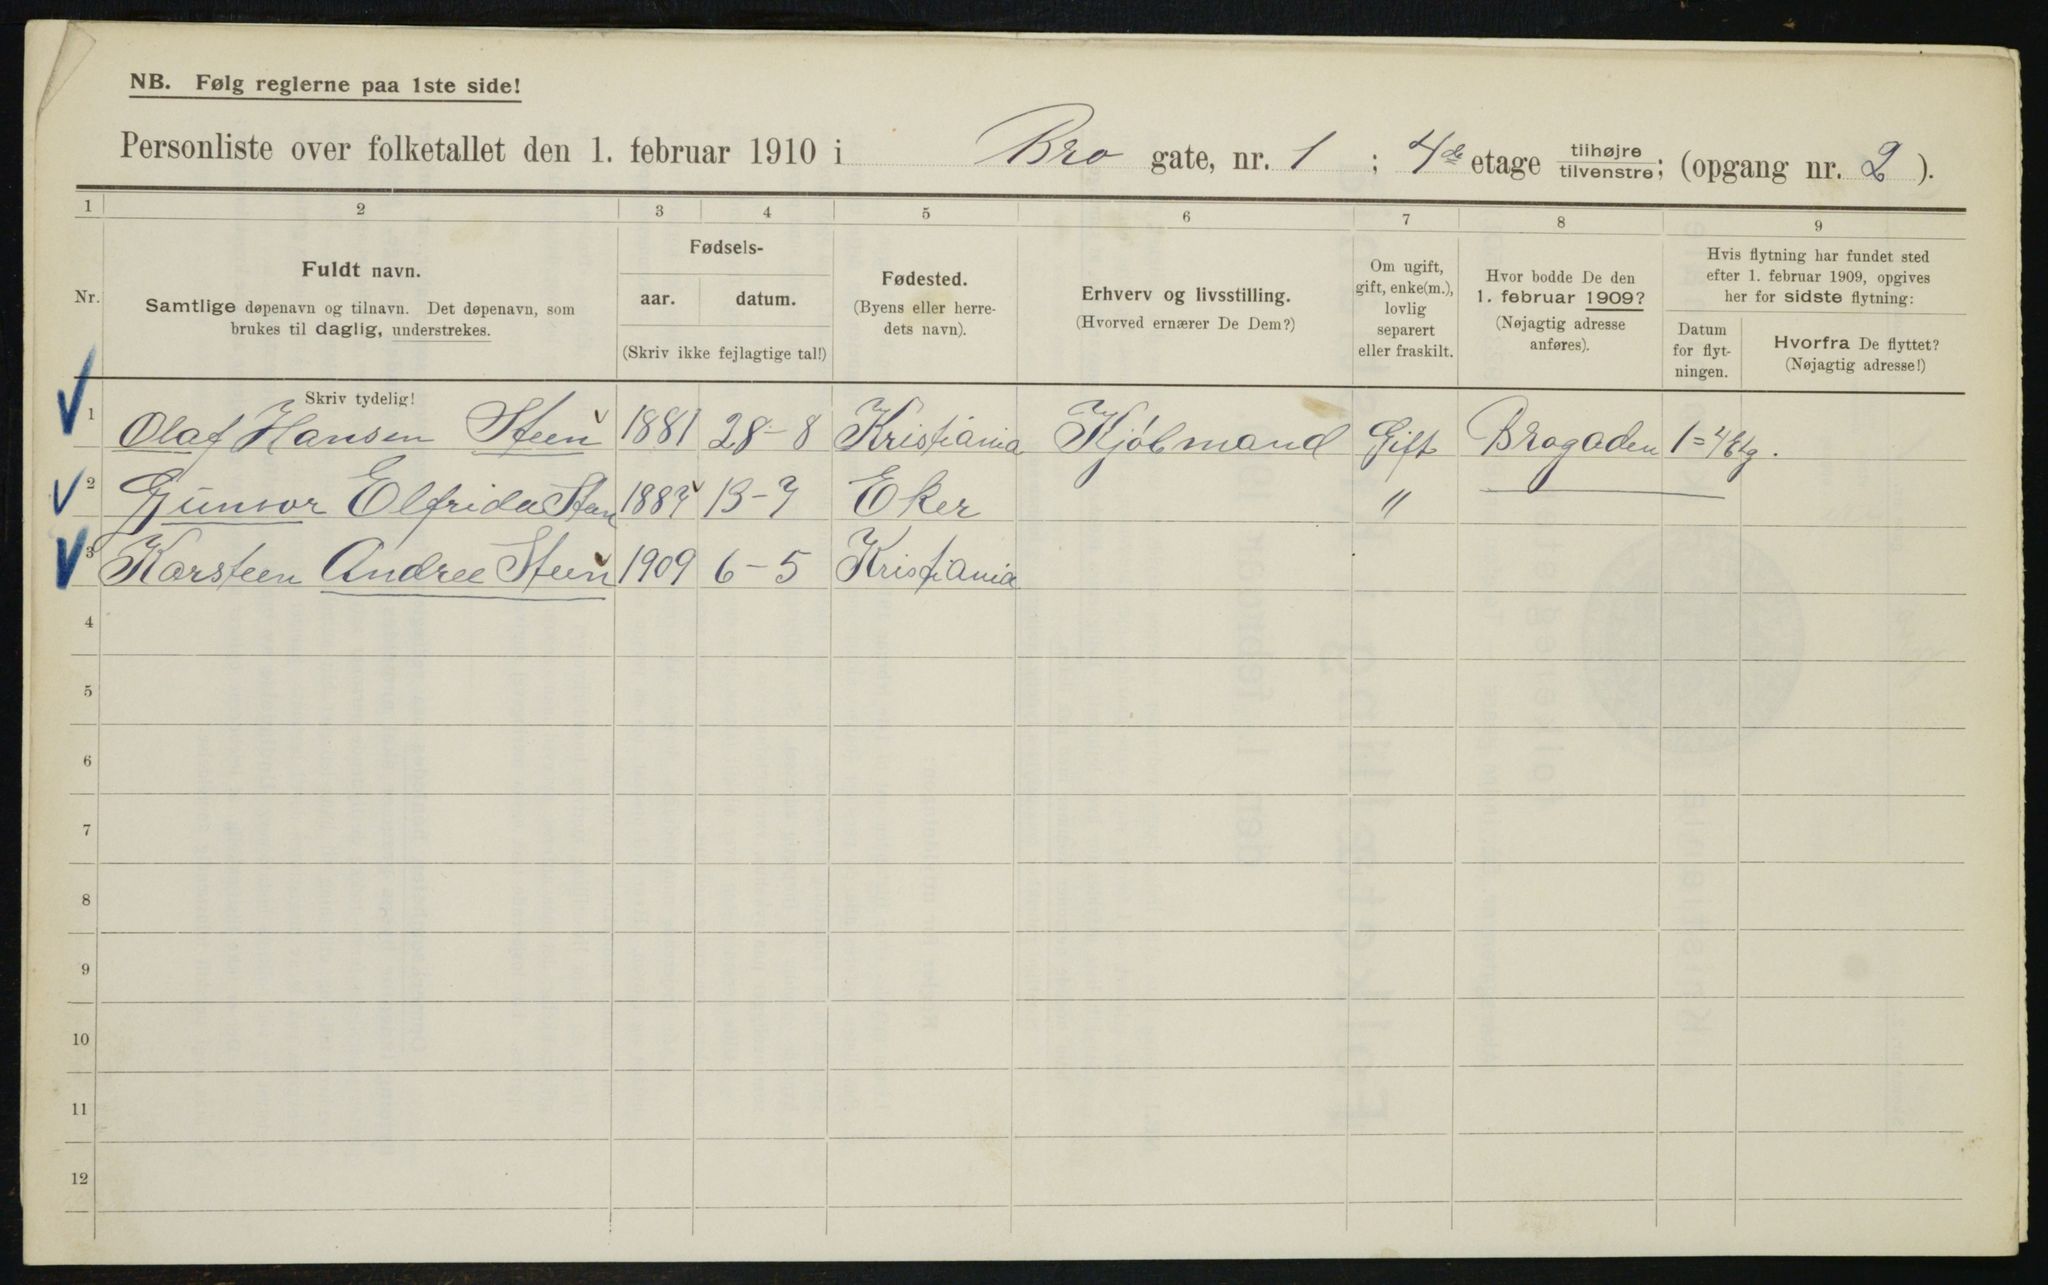 NB. Følg reglerne paa 1ste side!
Personliste over folketallet den 1. februar 1910 i Bro gate, nr. 1 ; 4de etage tilhøjre tilvenstre; (opgang nr. 2 ).
1 2 3 4 5 6 7 8 9
Nr.
Fuldt navn.
Samtlige døpenavn og tilnavn. Det døpenavn, som
brukes til daglig, understrekes.
Fødsels-
aar. datum.
(Skriv ikke fejlagtige tal!)
Fødested.
(Byens eller herre-
dets navn).
Erhverv og livsstilling.
(Hvorved ernærer De Dem?)
Om ugift,
gift, enke(m.),
lovlig
separert
eller fraskilt.
Hvor bodde De den
1. februar 1909?
(Nøjagtig adresse
anføres).
Hvis flytning har fundet sted
efter 1. februar 1909, opgives
her for sidste flytning:
Datum
for flyt-
ningen.
Hvorfra De flyttet?
(Nøjagtig adresse!)
Skriv tydelig!
1 Olaf Hansen Steen 1881 28-8 Kristiania Kjøbmand Gift Brogaden 1=4 Etg.
2 Gunvor Elfrida Steen 1887 13-7 Eker "
3 Karsteen Andree Steen 1909 6-5 Kristiania
4
5
6
7
8
9
10
11
12